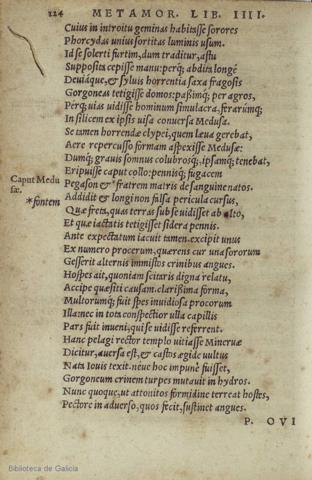 124 METAMOR. LIB. IIII.
Cuius in introitu geminas habitasse sorores
Phorcydas unius sortitas luminis usum.
Id se solerti furtim, dum traditur, astu
Supposita cepisse manu: perq; abdita longè
Deuiáque, & syluis horrentia saxa fragosis
Gorgoneas tetigisse domos: paßimq; per agros,
Perq; uias uidisse hominum simulacra, ferarumq;
In silicem ex ipsis uisa conuersa Medusa.
Se tamen horrendæ clypei, quem læua gerebat,
Aere repercusso formam aspexisse Medusæ:
Dumq; grauis somnus colubrosq;, ipsamq; tenebat,
Eripuisse caput collo: pennisq; fugacem
Caput Medusæ.
Pegason & *fratrem matris de sanguine natos.
*fontem
Addidit & longi non falsa pericula cursus,
Quæ freta, quas terras sub se uidisset ab alto,
Et quæ iactatis tetigisset sidera pennis.
Ante expectatum iacuit tamen. excipit unus
Ex numero procerum, quærens cur una sororum
Gesserit alternis immistos crinibus angues.
Hospes ait, quoniam scitaris digna relatu,
Accipe quæsiti causam. clarissima forma,
Multorumq; fuit spes inuidiosa procorum
Illa: nec in tota conspectior ulla capillis
Pars fuit inueni, qui se uidisse referrent.
Hanc pelagi rector templo uitiasse Mineruæ
Dicitur, auersa est, & castos ægide uultus
Nata Iouis texit. neue hoc impune fuisset,
Gorgoneum crinem turpes mutauit in hydros.
Nunc quoque, ut attonitos formidine terreat hostes,
Pectore in aduerso, quos fecit, sustinet angues.
P. OVI
Biblioteca de Galicia